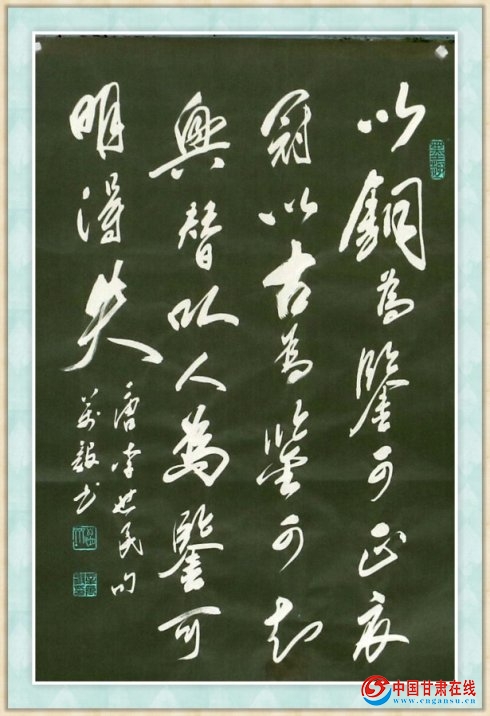 以銅為鑒可正衣
冠以古為鑒可知
興替以人為鑒可
明得失
唐李世民句
万毅书
中国甘肃在线
www.cngansu.cn